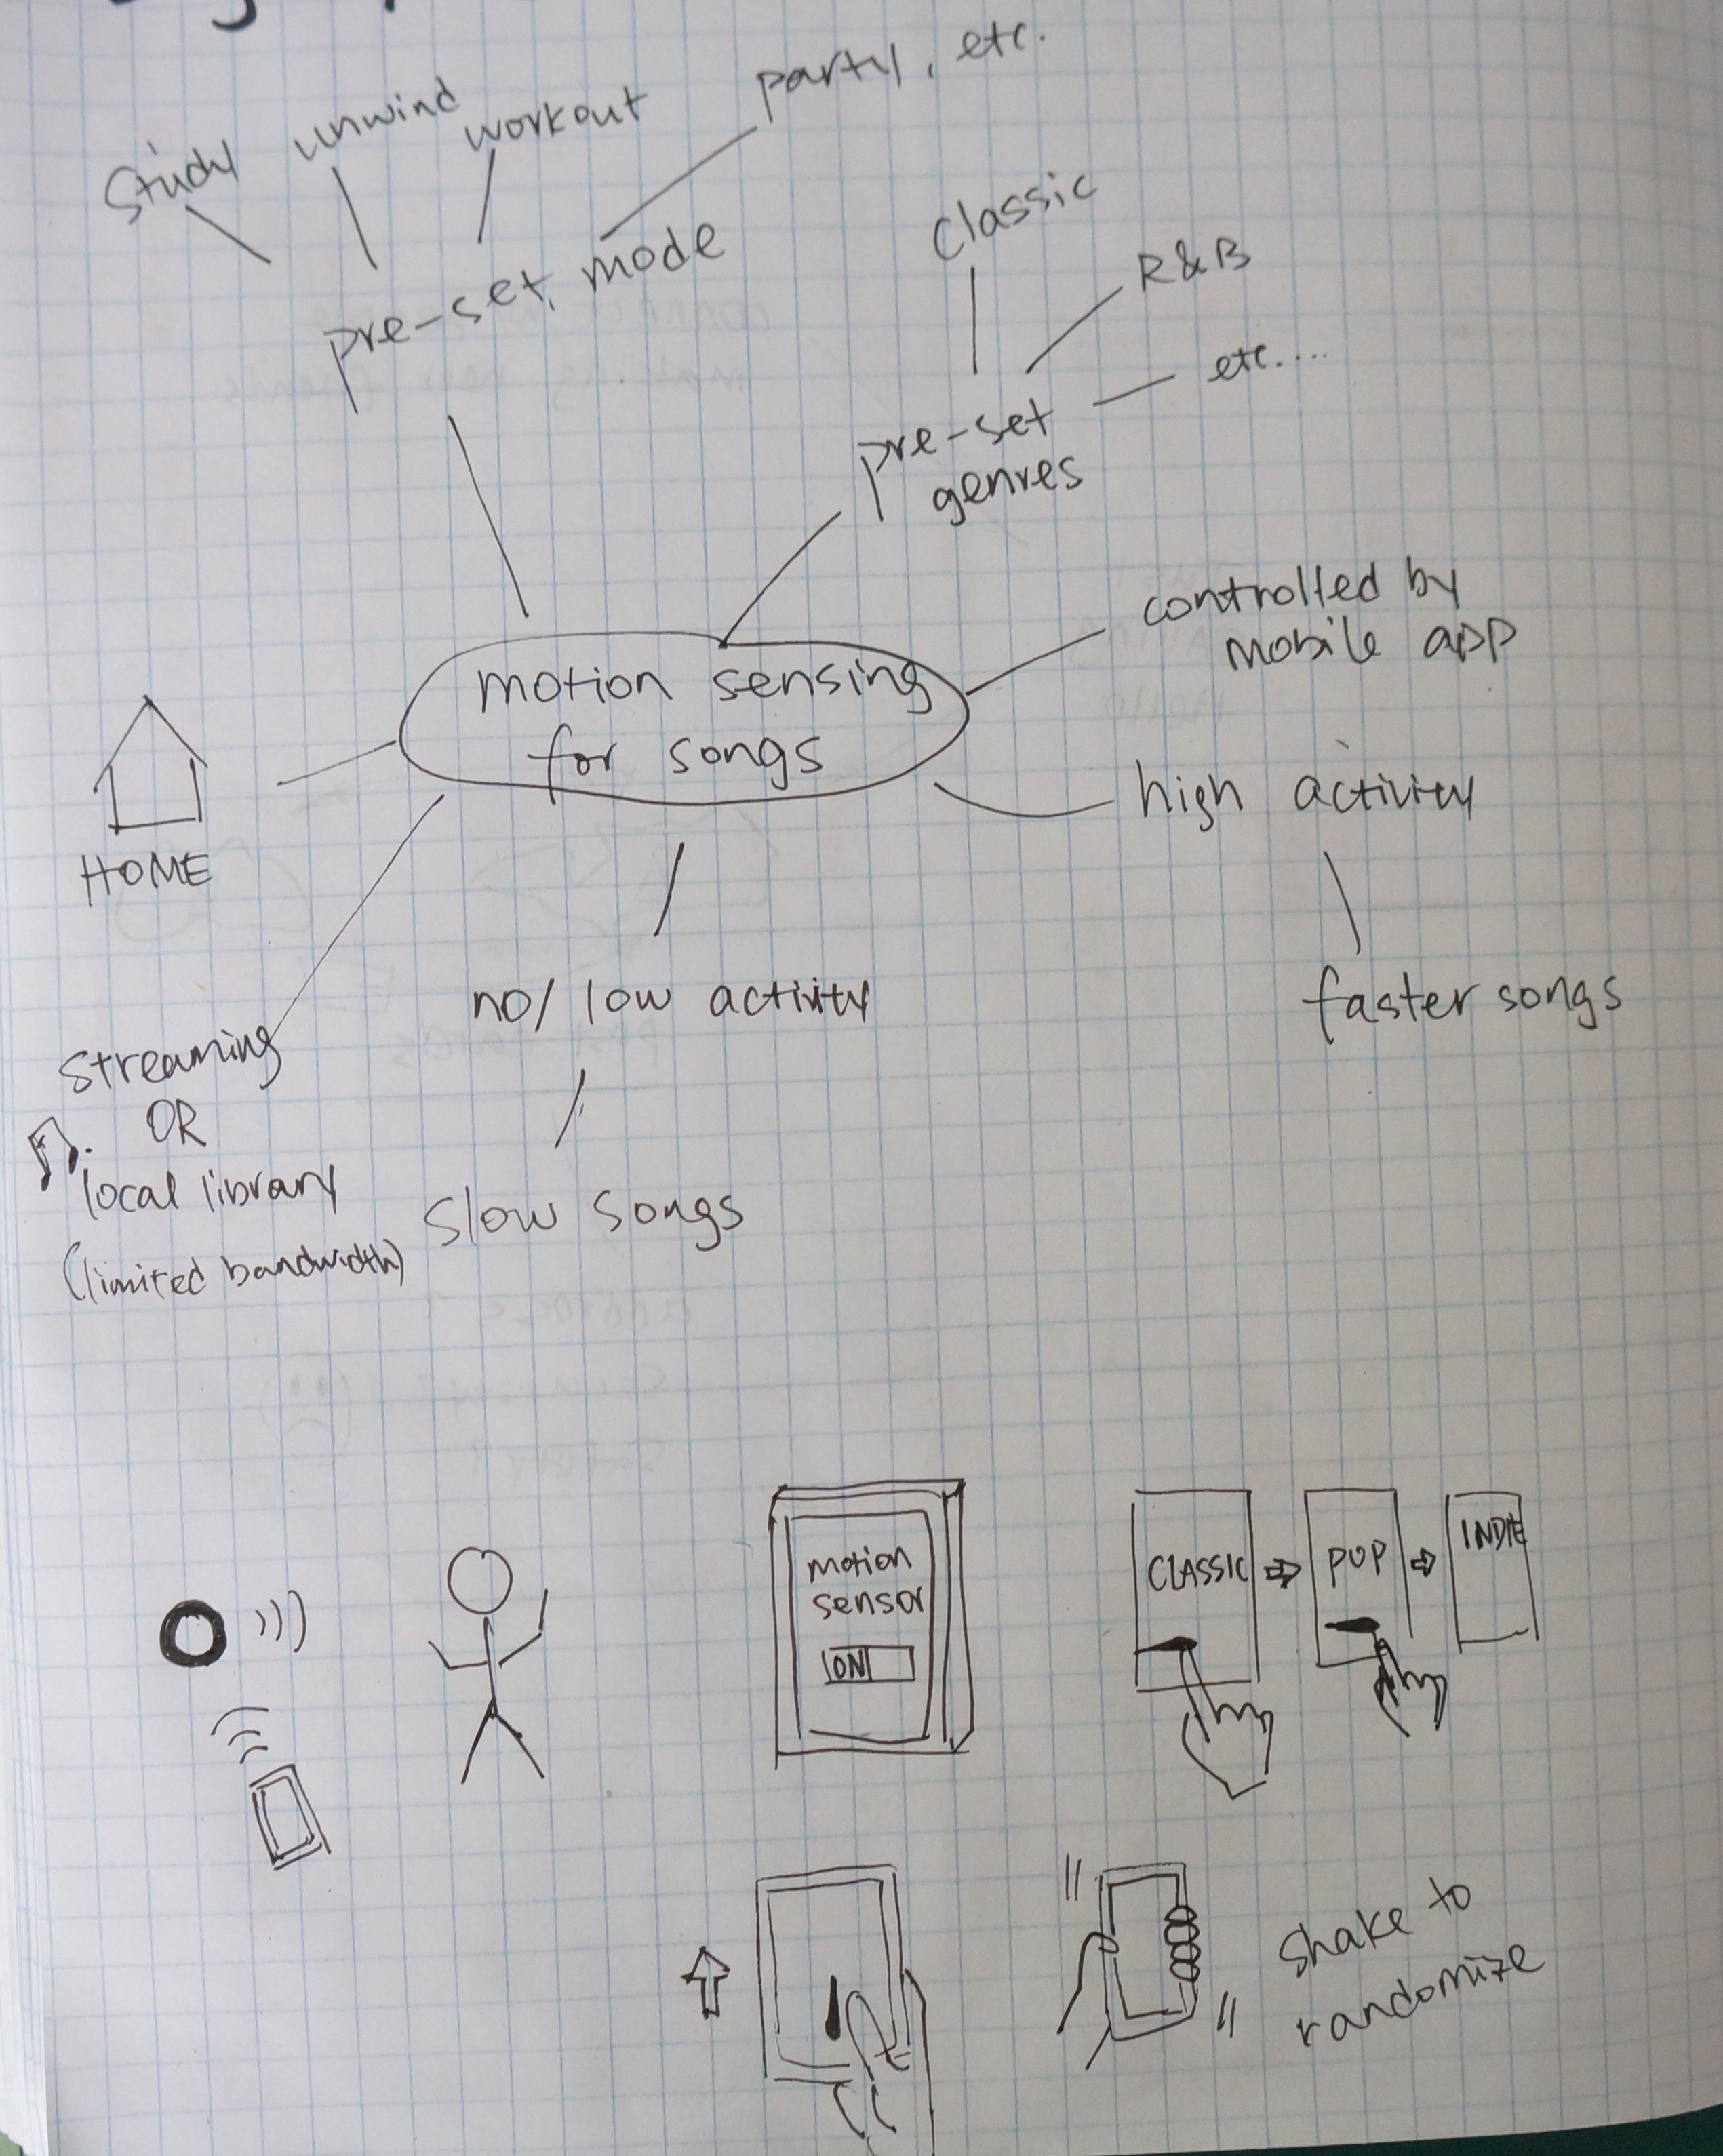 Study unwind workout party, etc.
pre-set mode
classic
R&B
etc....
pre-set
genres
controlled by
mobile app
motion sensing
for songs
HOME
high activity
faster songs
no/ low activity
slow songs
streaming
OR
local library
(limited bandwidth)
motion
sensor
ON
CLASSIC
POP
INDIE
shake to
randomize